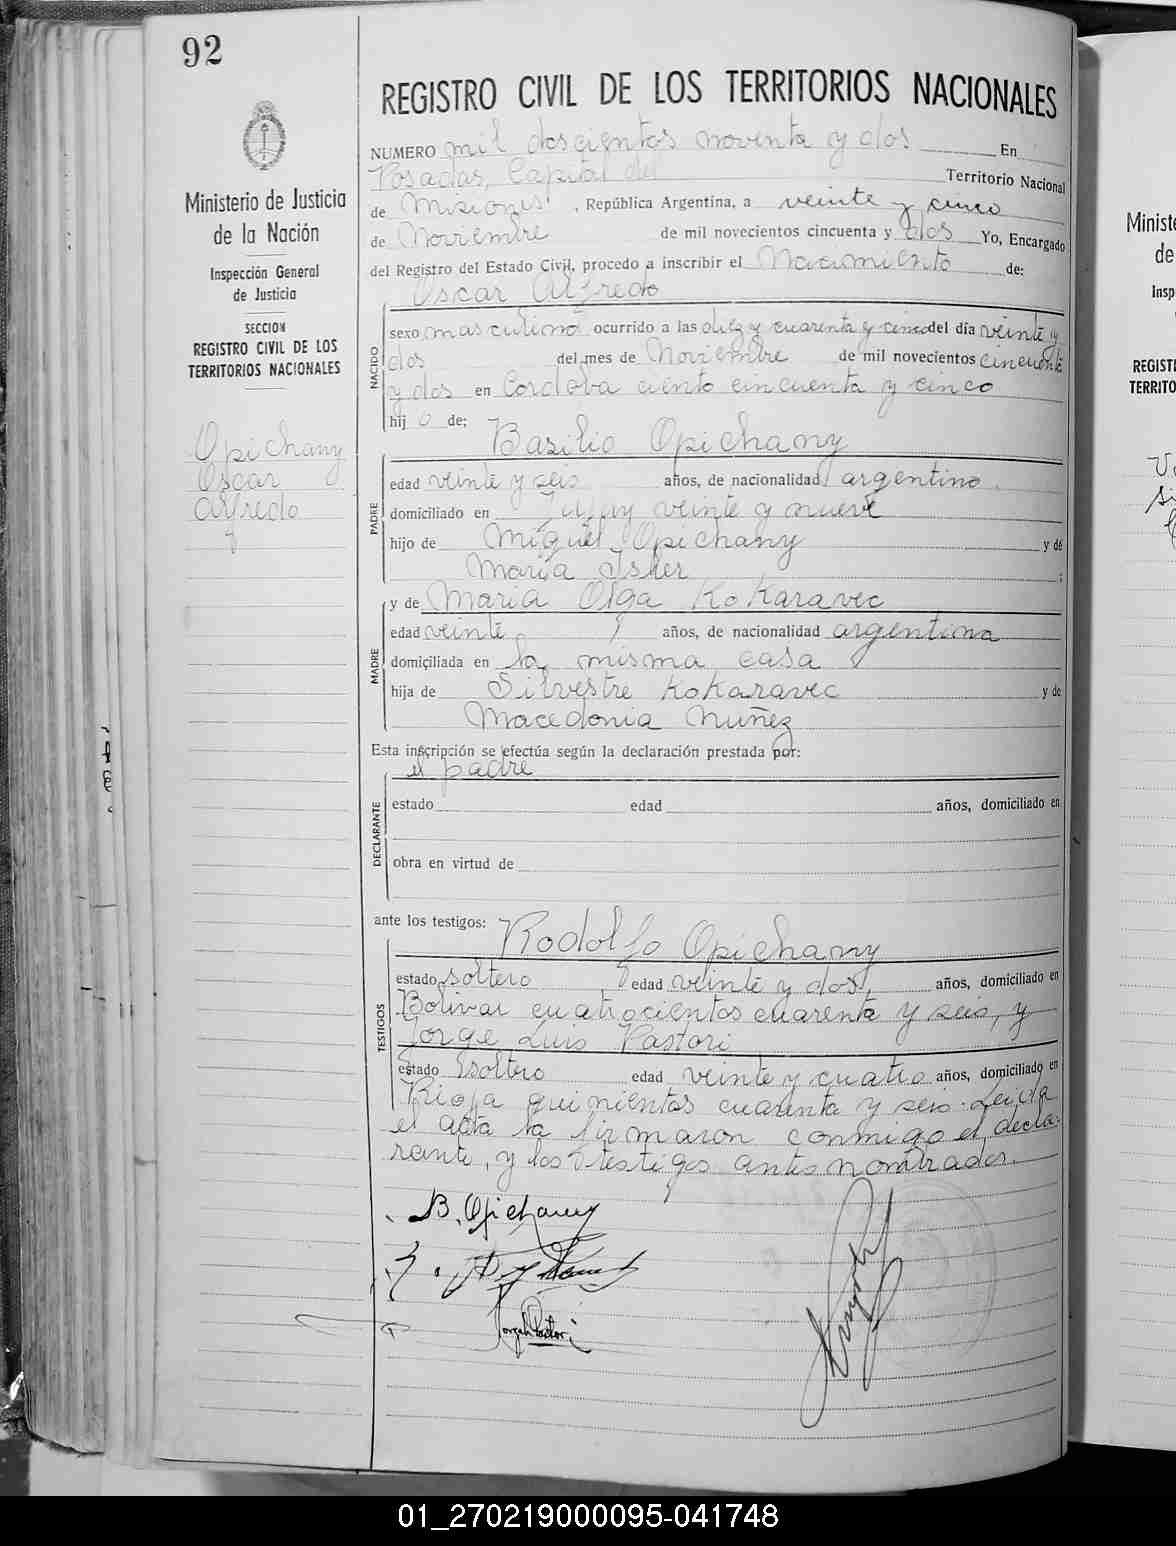 92
REGISTRO CIVIL DE LOS TERRITORIOS NACIONALES
Ministerio de Justicia
de la Nación
Inspección General
de Justicia
SECCION
REGISTRO CIVIL DE LOS
TERRITORIOS NACIONALES
Opichany
Oscar
Alfredo
NUMERO mil doscientos noventa y dos En
Posadas, Capital del Territorio Nacional
de Misiones, República Argentina, a veinte y cinco
de Noviembre de mil novecientos cincuenta y dos Yo, Encargado
del Registro del Estado Civil, procedo a inscribir el Nacimiento de:
Oscar Alfredo
NACIDO
sexo masculino ocurrido a las diez y cuarenta y cinco del día veinte y
dos del mes de Noviembre de mil novecientos cincuenta
y dos en Cordoba ciento cincuenta y cinco
hijo de:
Basilio Opichany
PADRE
edad veinte y seis años, de nacionalidad argentino
domiciliado en Jujuy veinte y nueve
hijo de Miguel Opichany y de
María ;
y de Maria Olga Kokaravec
MADRE
edad veinte años, de nacionalidad argentina
domiciliada en la misma casa
hija de Silvestre Kokaravec y de
Macedonia Nuñez
Esta inscripción se efectúa según la declaración prestada por:
el padre
DECLARANTE
estado edad años, domiciliado en
obra en virtud de
ante los testigos:
Rodolfo Opichany
TESTIGOS
estado soltero, edad veinte y dos, años, domiciliado en
Bolivar cuatrocientos cuarenta y seis, y
Jorge Luis Pastori
estado soltero edad veinte y cuatro años, domiciliado en
Rioja quinientos cuarenta y seis. Leida
el acta la firmaron conmigo el decla-
rante, y los testigos antes nombrados.
B. Opichany
Jorge L Pastori
Ministe
de
Insp
REGISTR
TERRITO
01_270219000095-041748